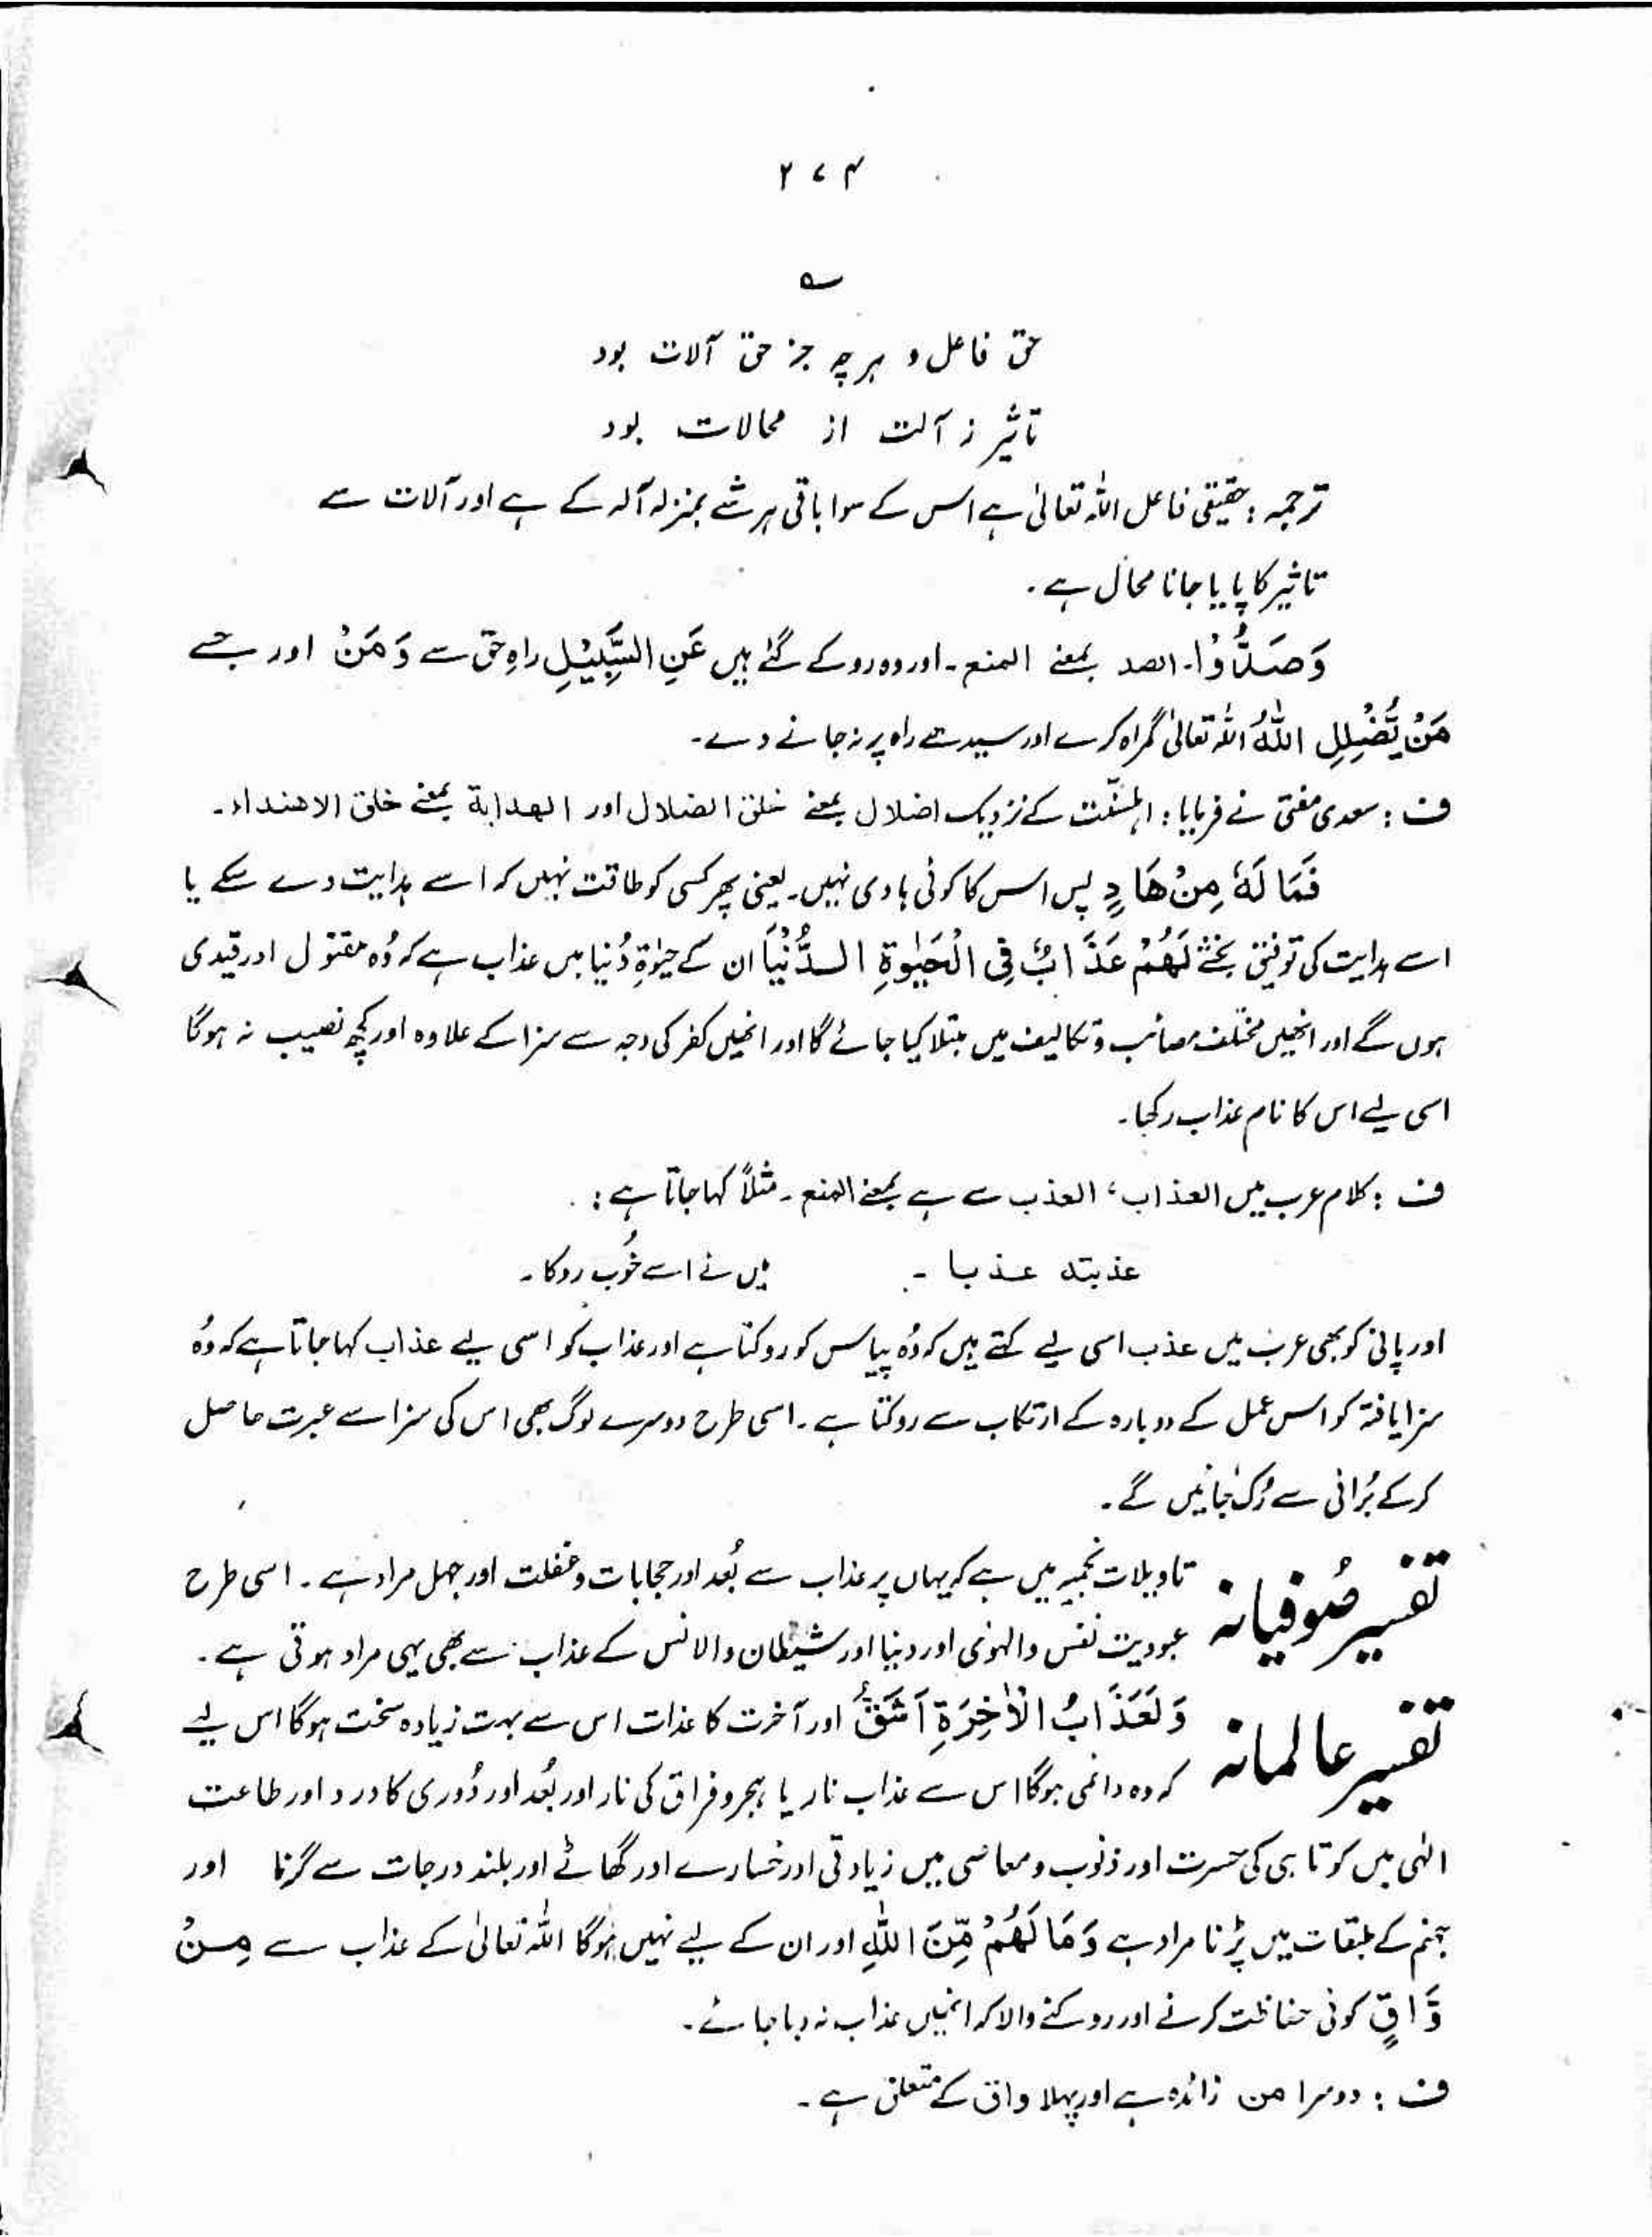 ۲۷۴
؎
حق فاعل و ہرچہ جز حق آلات بود
تاثیر ز آلت از محالات بود
ترجمہ: حقیقی فاعل اللہ تعالیٰ ہے اس کے سوا باقی ہر شے بمنزلہ آلہ کے ہے اور آلات سے
تاثیر کا پایا جانا محال ہے۔
وَصَدُّوْا۔ الصد بمعنے المنع۔ اور وہ روکے گئے ہیں عَنِ السَّبِیْلِ راہِ حق سے وَمَنْ اور جسے
مَنْ یُّضْلِلِ اللہُ اللہ تعالیٰ گمراہ کرے اور سیدھے راہ پر نہ جانے دے۔
ف: سعدی مفتی نے فرمایا: اہلسنّت کے نزدیک اضلال بمعنے خلق الضلال اور الھدایة بمعنے خلق الاھتداء۔
فَمَا لَهٗ مِنْ هَادٍ پس اس کا کوئی ہادی نہیں۔ یعنی پھر کسی کو طاقت نہیں کہ اسے ہدایت دے سکے یا
اسے ہدایت کی توفیق بخشے لَهُمْ عَذَابٌ فِی الْحَیٰوةِ الدُّنْیَا ان کے حیٰوۃِ دُنیا میں عذاب ہے کہ وُہ مقتول اور قیدی
ہوں گے اور انھیں مختلف مصائب و تکالیف میں مبتلا کیا جائے گا اور انھیں کفر کی وجہ سے سزا کے علاوہ اور کچھ نصیب نہ ہوگا
اسی لیے اس کا نام عذاب رکھا۔
ف: کلام عرب میں العذاب، العذب سے ہے بمعنے المنع۔ مثلاً کہا جاتا ہے:
عذبته عذبا۔ میں نے اسے خُوب روکا۔
اور پانی کو بھی عرب میں عذب اسی لیے کہتے ہیں کہ وُہ پیاس کو روکتا ہے اور عذاب کو اسی لیے عذاب کہا جاتا ہے کہ وُہ
سزا یافتہ کو اس عمل کے دوبارہ کے ارتکاب سے روکتا ہے۔ اسی طرح دوسرے لوگ بھی اس کی سزا سے عبرت حاصل
کرکے بُرائی سے رُک جائیں گے۔
تفسیر صُوفیانہ تاویلات نجمیہ میں ہے کہ یہاں پر عذاب سے بُعد اور حجابات و غفلت اور جہل مراد ہے۔ اسی طرح
عبودیت نفس والہوٰی اور دنیا اور شیطان والانس کے عذاب سے بھی یہی مراد ہوتی ہے۔
تفسیر عالمانہ وَلَعَذَابُ الْاٰخِرَةِ اَشَقُّ اور آخرت کا عذاب اس سے بہت زیادہ سخت ہوگا اس لیے
کہ وہ دائمی ہوگا اس سے عذاب نار یا ہجر و فراق کی نار اور بُعد اور دُوری کا درد اور طاعت
الٰہی میں کوتاہی کی حسرت اور ذنوب و معاصی میں زیادتی اور خسارے اور گھاٹے اور بلند درجات سے گرنا اور
جہنم کے طبقات میں پڑنا مراد ہے وَمَا لَهُمْ مِّنَ اللہِ اور ان کے لیے نہیں ہوگا اللہ تعالیٰ کے عذاب سے مِنْ
وَّاقٍ کوئی حفاظت کرنے اور روکنے والا کہ انھیں عذاب نہ دیا جائے۔
ف: دوسرا من زائدہ ہے اور پہلا واق کے متعلق ہے۔